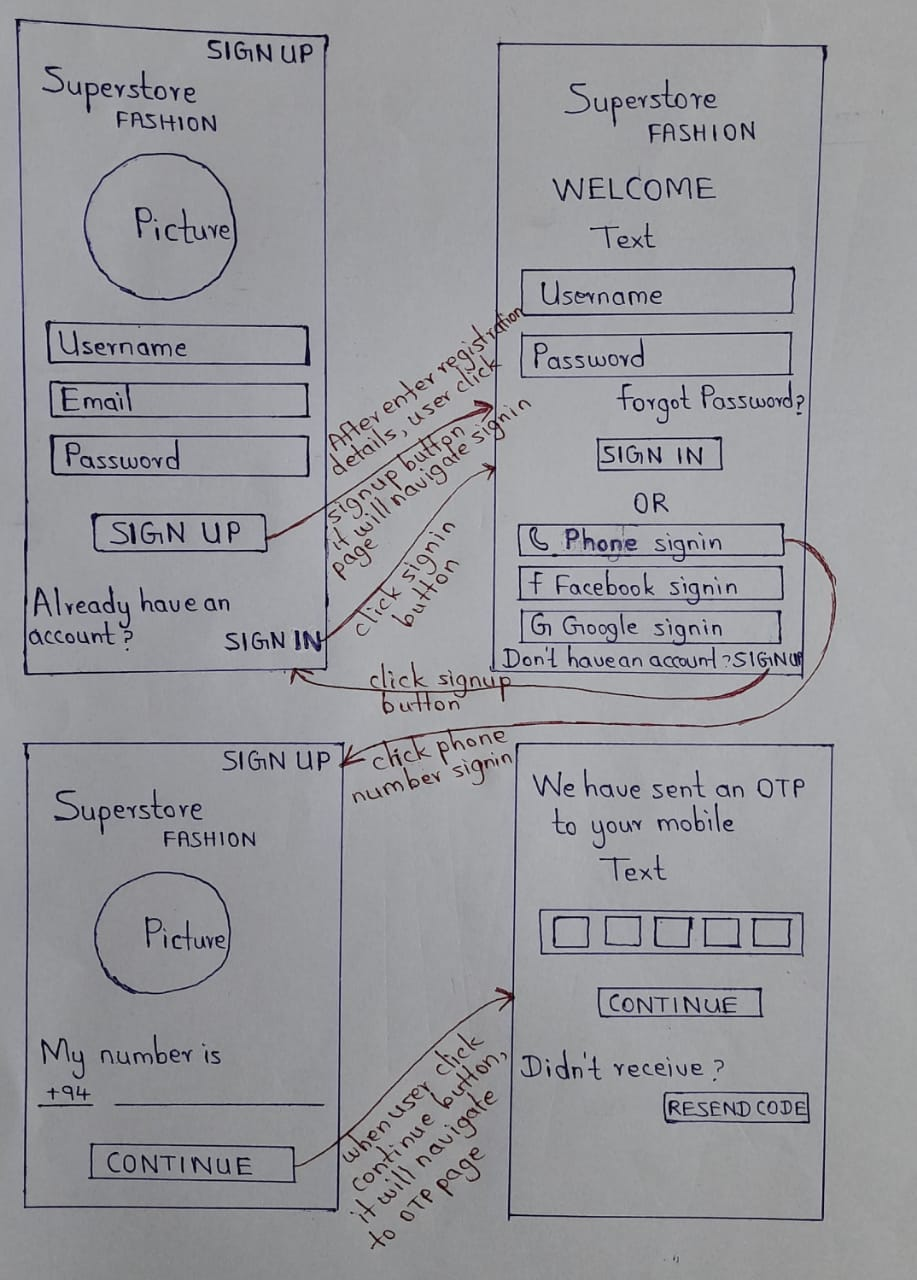 SIGN UP
Superstore
FASHION
Picture
Username
Email
Password
SIGN UP
Already have an
account?
SIGN IN
After enter registration
details, user click
signup button
it will navigate signin
page
click signin
button
Superstore
FASHION
WELCOME
Text
Username
Password
Forgot Password?
SIGN IN
OR
Phone signin
f Facebook signin
G Google signin
Don't have an account? SIGNUP
click signup
button
click phone
number signin
SIGN UP
Superstore
FASHION
Picture
My number is
+94
CONTINUE
when user click
continue button,
it will navigate
to OTP page
We have sent an OTP
to your mobile
Text
CONTINUE
Didn't receive?
RESEND CODE